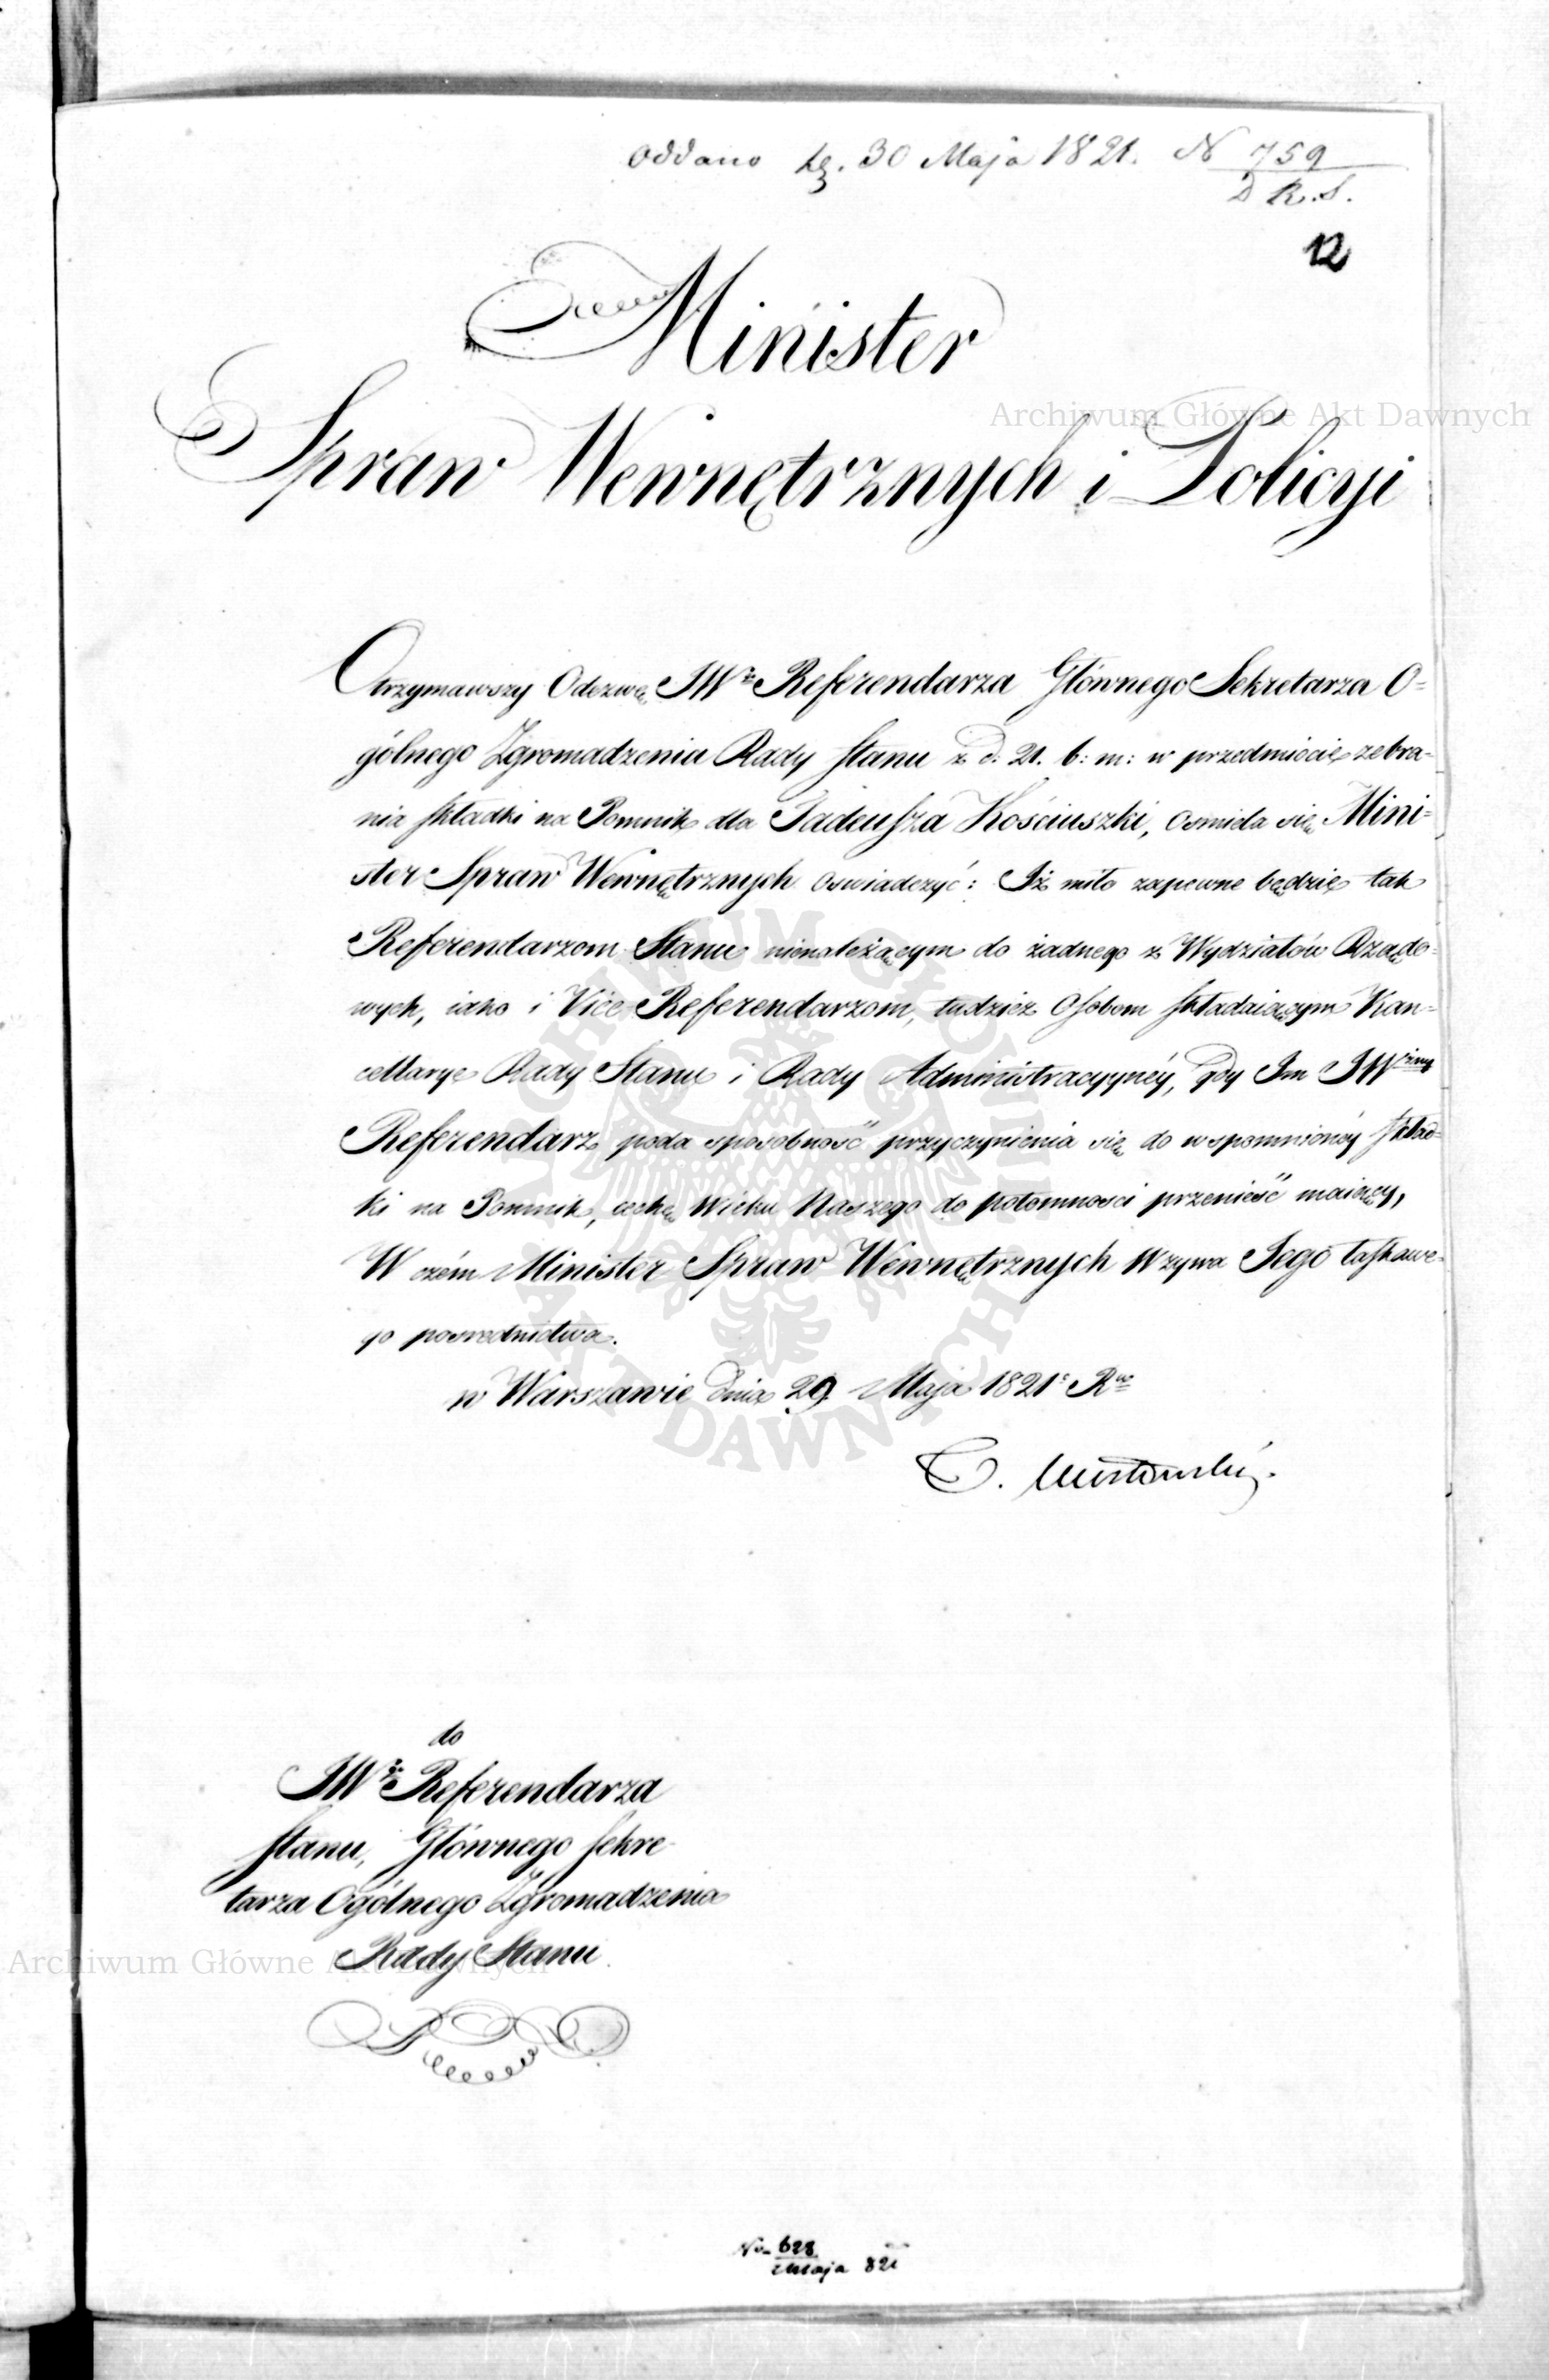 Oddano dz. 30 Maja 1821. N 759
D R. S.
12
Minister
Spraw Wewnętrznych i Policyi
Otrzymawszy Odezwę JWo Referendarza Głównego Sekretarza O=
gólnego Zgromadzenia Rady Stanu z d. 21. b: m: w przedmiocie zebra-
nia składki na Pomnik dla Tadeusza Kościuszki, ośmiela się Mini=
ster Spraw Wewnętrznych oswiadczyć: Iż miło zapewne będzie tak
Referendarzom Stanu nienależącym do żadnego z Wydziałów Rządo-
wych, iako i Vice-Referendarzom, tudzież Osobom składaiącym Kan=
cellaryę Rady Stanu i Rady Administracyynéy, gdy Im JW
Referendarz poda sposobność przyczynienia się do wspomnionéy skład=
ki na Pomnik, cechę Wieku Naszego do potomnosci przenieść maiący,
W czém Minister Spraw Wewnętrznych Wzywa Jego łaskawe-
go posrednictwa.
w Warszawie dnia 29 Maja 1821 Ru
T. Mostowski.
do
JWo Referendarza
Stanu, Głównego Sekre-
tarza Ogólnego Zgromadzenia
Rady Stanu
No 628
Maja 821
Archiwum Główne Akt Dawnych
ARCHIWUM GŁÓWNE AKT DAWNYCH
Archiwum Główne Akt Dawnych